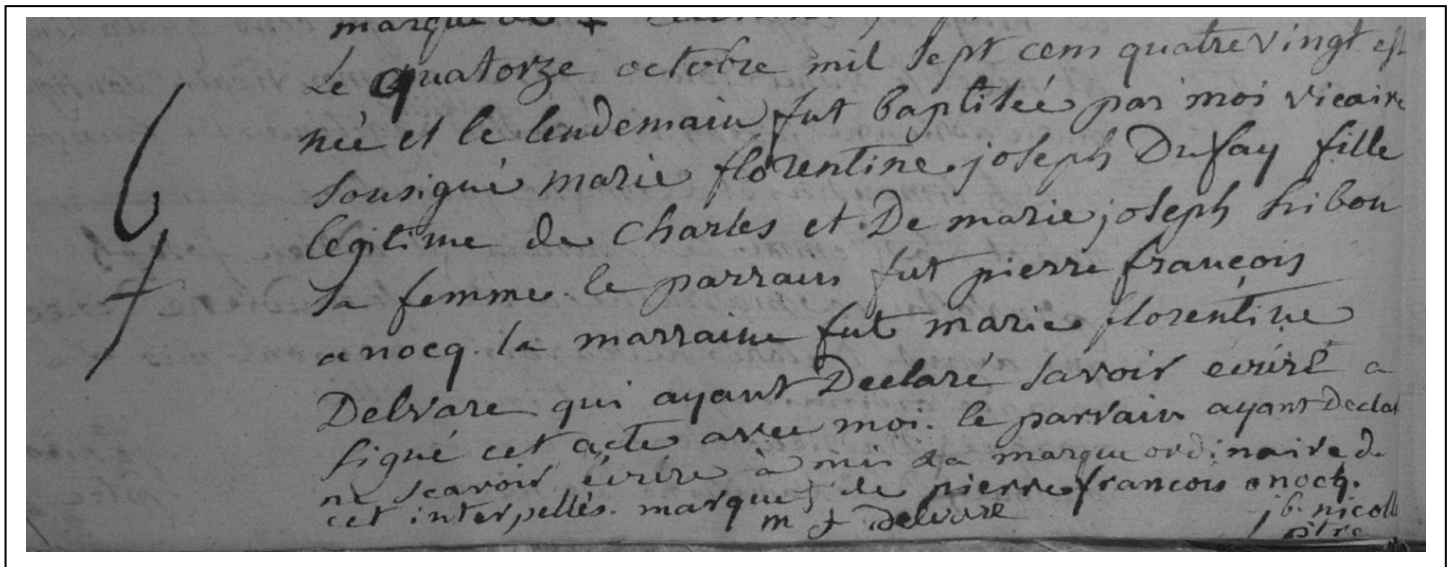 marque de +
Le quatorze octobre mil sept cens quatre vingt est
née et le lendemain fut baptisée par moi vicaire
sousigné marie florentine joseph Dufay fille
légitime de charles et De marie joseph hibon
sa femme. le parrain fut pierre françois
anocq. la marraine fut marie florentine
Delvare qui ayant Declaré savoir ecrire a
signé cet acte avec moi. le parrain ayant Declaré
ne scavoir écrire à mis sa marque ordinaire de
cet interpellés. marque + de pierre françois anocq.
m f Delvare j b. nicolle
ptre
6
7